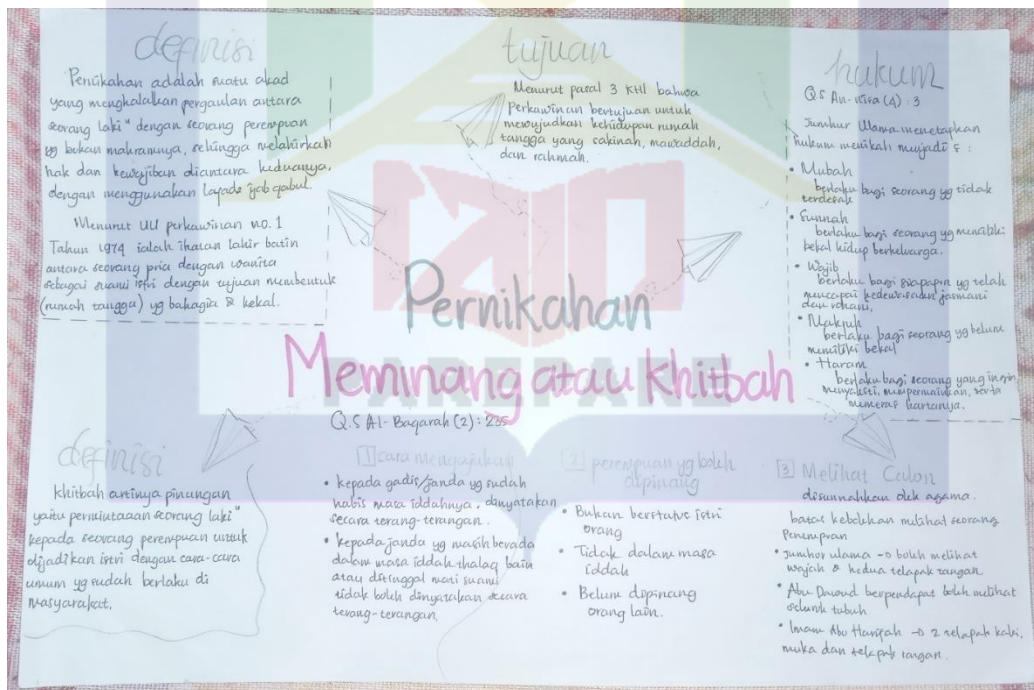 definisi
Pernikahan adalah suatu akad
yang menghalalkan pergaulan antara
seorang laki" dengan seorang perempuan
yg bukan mahramnya, sehingga melahirkan
hak dan kewajiban diantara keduanya,
dengan menggunakan lapadz ijab qabul.
Menurut UU perkawinan no. 1
Tahun 1974 ialah ikatan lahir batin
antara seorang pria dengan wanita
sebagai suami istri dengan tujuan membentuk
(rumah tangga) yg bahagia & kekal.
tujuan
Menurut pasal 3 KHI bahwa
perkawinan bertujuan untuk
mewujudkan kehidupan rumah
tangga yang sakinah, mawaddah,
dan rahmah.
hukum
Q.S An-nisa (4) : 3
Jumhur Ulama menetapkan
hukum menikah menjadi 5 :
• Mubah
berlaku bagi seorang yg tidak
terdesak
• Sunnah
berlaku bagi seorang yg memiliki
bekal hidup berkeluarga.
• Wajib
berlaku bagi siapapun yg telah
mencapai kedewasaan jasmani
dan rohani.
• Makruh
berlaku bagi seorang yg belum
memiliki bekal
• Haram
berlaku bagi seorang yang ingin
menyakiti, mempermainkan, serta
memeras hartanya.
Pernikahan
Meminang atau khitbah
PAREPARE
Q.S Al-Baqarah (2) : 235
definisi
Khitbah artinya pinangan
yaitu permintaaan seorang laki"
kepada seorang perempuan untuk
dijadikan istri dengan cara-cara
umum yg sudah berlaku di
masyarakat.
1 cara mengajukan
• kepada gadis/janda yg sudah
habis masa iddahnya, dinyatakan
secara terang-terangan.
• kepada janda yg masih berada
dalam masa iddah thalaq bain
atau ditinggal mati suami
tidak boleh dinyatakan secara
terang-terangan.
2 perempuan yg boleh
dipinang
• Bukan berstatus istri
orang
• Tidak dalam masa
iddah
• Belum dipinang
orang lain.
3 Melihat Calon
disunnahkan oleh agama.
batas kebolehan melihat seorang
Perempuan
• jumhor ulama → boleh melihat
wajah & kedua telapak tangan
• Abu Daoud berpendapat boleh melihat
seluruh tubuh
• Imam Abu Hanifah → 2 telapak kaki,
muka dan telapak tangan.